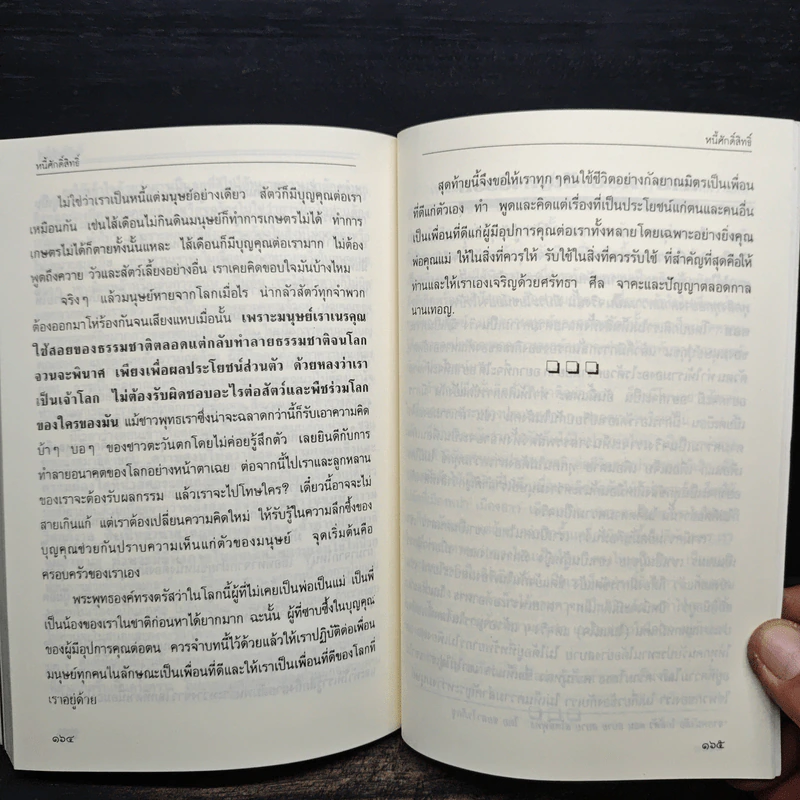 หนี้ศักดิ์สิทธิ์
ไม่ใช่ว่าเราเป็นหนี้แต่มนุษย์อย่างเดียว สัตว์ก็มีบุญคุณต่อเรา
เหมือนกัน เช่นไส้เดือนไม่กินดินมนุษย์ก็ทำการเกษตรไม่ได้ ทำการ
เกษตรไม่ได้ก็ตายทั้งนั้นแหละ ไส้เดือนก็มีบุญคุณต่อเรามาก ไม่ต้อง
พูดถึงควาย วัวและสัตว์เลี้ยงอย่างอื่น เราเคยคิดขอบใจมันบ้างไหม
จริงๆ แล้วมนุษย์หายจากโลกเมื่อไร น่ากลัวสัตว์ทุกจำพวก
ต้องออกมาโห่ร้องกันจนเสียงแหบเมื่อนั้น เพราะมนุษย์เราเนรคุณ
ใช้สอยของธรรมชาติตลอดแต่กลับทำลายธรรมชาติจนโลก
จวนจะพินาศ เพียงเพื่อผลประโยชน์ส่วนตัว ด้วยหลงว่าเรา
เป็นเจ้าโลก ไม่ต้องรับผิดชอบอะไรต่อสัตว์และพืชร่วมโลก
ของใครของมัน แม้ชาวพุทธเราซึ่งน่าจะฉลาดกว่านี้ก็รับเอาความคิด
บ้าๆ บอๆ ของชาวตะวันตกโดยไม่ค่อยรู้สึกตัว เลยยินดีกับการ
ทำลายอนาคตของโลกอย่างหน้าตาเฉย ต่อจากนี้ไปเราและลูกหลาน
ของเราจะต้องรับผลกรรม แล้วเราจะไปโทษใคร? เดี๋ยวนี้อาจจะไม่
สายเกินแก้ แต่เราต้องเปลี่ยนความคิดใหม่ ให้รับรู้ในความลึกซึ้งของ
บุญคุณช่วยกันปราบความเห็นแก่ตัวของมนุษย์ จุดเริ่มต้นคือ
ครอบครัวของเราเอง
พระพุทธองค์ทรงตรัสว่าในโลกนี้ผู้ที่ไม่เคยเป็นพ่อเป็นแม่ เป็นพี่
เป็นน้องของเราในชาติก่อนหาได้ยากมาก ฉะนั้น ผู้ที่ซาบซึ้งในบุญคุณ
ของผู้มีอุปการคุณต่อตน ควรจำบทนี้ไว้ด้วยแล้วให้เราปฏิบัติต่อเพื่อน
มนุษย์ทุกคนในลักษณะเป็นเพื่อนที่ดีและให้เราเป็นเพื่อนที่ดีของโลกที่
เราอยู่ด้วย
๑๖๔
หนี้ศักดิ์สิทธิ์
สุดท้ายนี้จึงขอให้เราทุกๆคนใช้ชีวิตอย่างกัลยาณมิตรเป็นเพื่อน
ที่ดีแก่ตัวเอง ทำ พูดและคิดแต่เรื่องที่เป็นประโยชน์แก่ตนและคนอื่น
เป็นเพื่อนที่ดีแก่ผู้มีอุปการคุณต่อเราทั้งหลายโดยเฉพาะอย่างยิ่งคุณ
พ่อคุณแม่ ให้ในสิ่งที่ควรให้ รับใช้ในสิ่งที่ควรรับใช้ ที่สำคัญที่สุดคือให้
ท่านและให้เราเองเจริญด้วยศรัทธา ศีล จาคะและปัญญาตลอดกาล
นานเทอญ.
๑๖๕